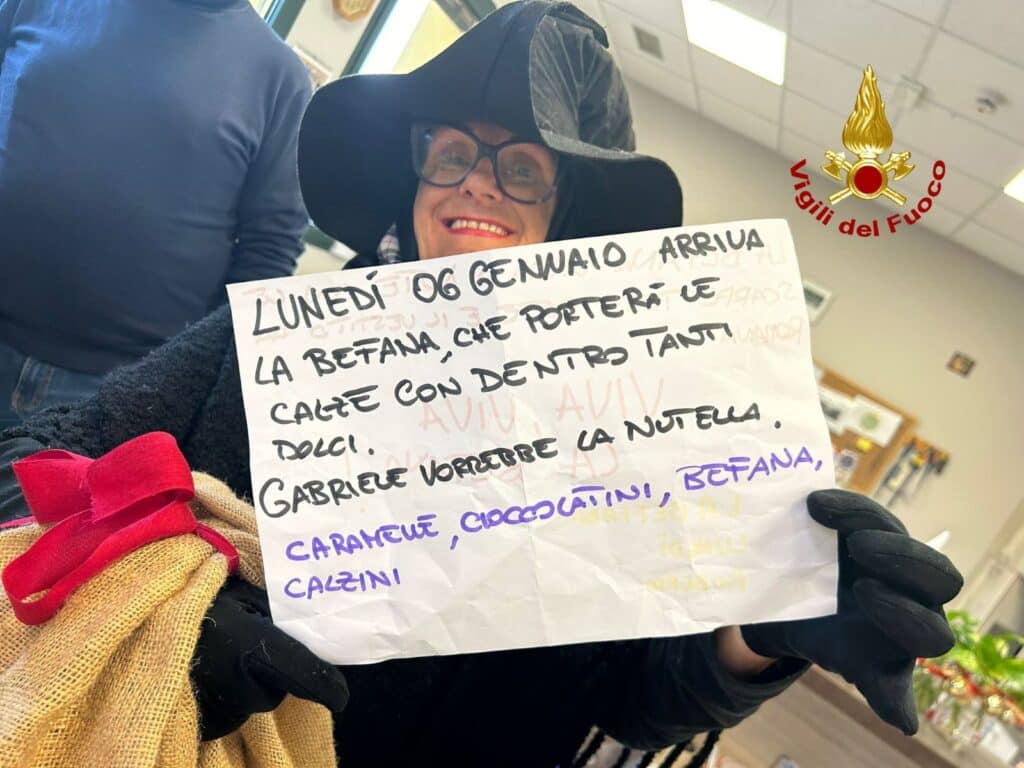 LUNEDÍ 06 GENNAIO ARRIVA
LA BEFANA, CHE PORTERÁ LE
CALZE CON DENTRO TANTI
DOLCI.
GABRIELE VORREBBE LA NUTELLA.
CARAMELLE, CIOCCOLATINI, BEFANA,
CALZINI
VIVA, VIVA
Vigili del Fuoco